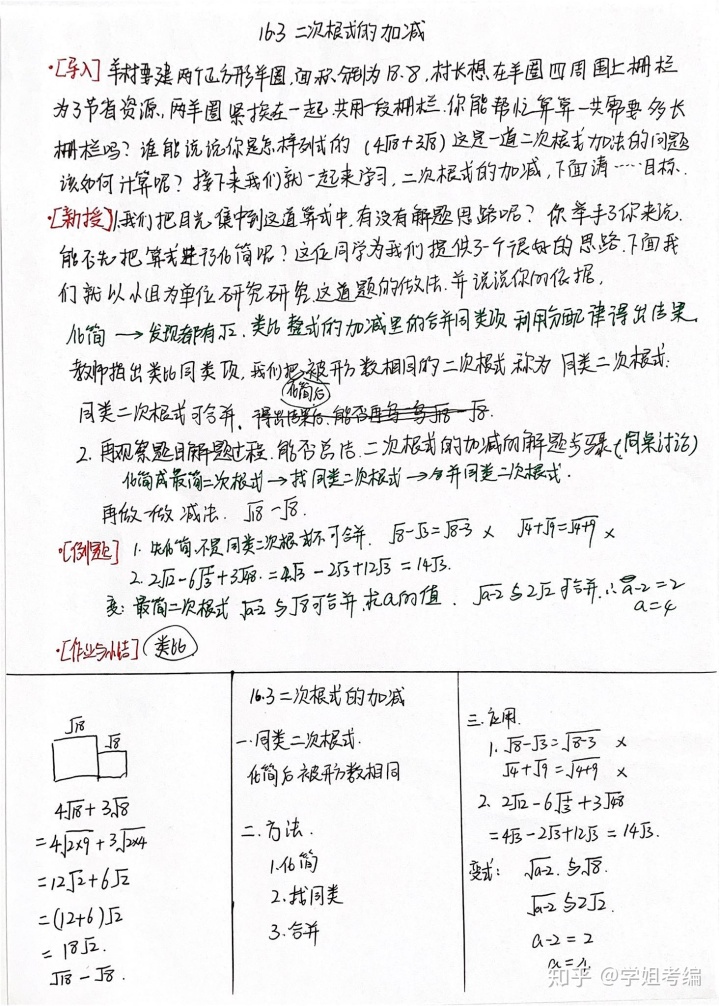 16.3 二次根式的加减
·[导入] 羊村要建两个正方形羊圈,面积分别为18.8,村长想在羊圈四周围上栅栏
为了节省资源,两羊圈紧挨在一起.共用一段栅栏.你能帮忙算算一共需要多长
栅栏吗?谁能说说你是怎样列式的(4√18+3√8)这是一道二次根式加法的问题
该如何计算呢?接下来我们就一起来学习,二次根式的加减,下面请……目标.
·[新授]1.我们把目光集中到这道算式中,有没有解题思路呢?你举手了你来说.
能否先把算式进行化简呢?这位同学为我们提供了一个很好的思路.下面我
们就以小组为单位研究研究这道题的做法.并说说你的依据.
化简→发现都有√2.类比整式的加减里的合并同类项 利用分配律得出结果.
教师指出类比同类项,我们把被开方数相同的二次根式称为同类二次根式.
化简后
同类二次根式可合并.得出结果后,能否再写一写√18-√8.
2.再观察题目解题过程.能否总结.二次根式的加减的解题步骤(同桌讨论)
化简成最简二次根式→找同类二次根式→合并同类二次根式.
再做一做减法.√18-√8.
·[例题] 1.先化简,不是同类二次根式不可合并. √8-√3=√8-3 × √4+√9=√4+9 ×
2.2√12-6√1/3+3√48.=4√3-2√3+12√3=14√3.
变:最简二次根式√a-2与√8可合并,求a的值. √a-2与2√2可合并,∴a-2=2
a=4
·[作业与小结](类比)
√18
√8
4√18+3√8
=4√2×9+3√2×4
=12√2+6√2
=(12+6)√2
=18√2.
√18-√8.
16.3二次根式的加减
一.同类二次根式.
化简后被开方数相同
二.方法.
1.化简
2.找同类
3.合并
三.应用.
1.√8-√3=√8-3 ×
√4+√9=√4+9 ×
2.2√12-6√1/3+3√48
=4√3-2√3+12√3=14√3.
变式:√a-2.与√8.
√a-2与2√2.
a-2=2
a=4
知乎 @学姐考编